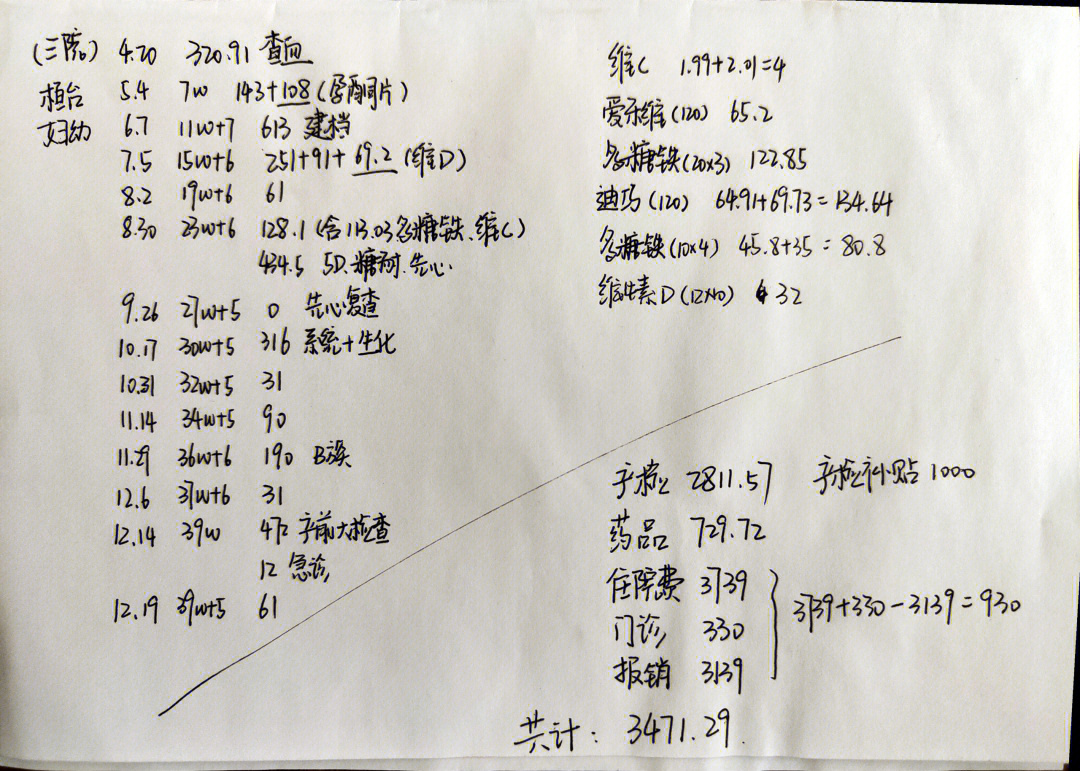 (三院) 4.20 320.91 查血
桓台 5.4 7w 143+108(孕酮片)
妇幼 6.7 11w+7 613 建档
7.5 15w+6 251+91+69.2(维D)
8.2 19w+6 61
8.30 23w+6 128.1(含113.03多糖铁、维C)
434.5 5D.糖耐.先心.
9.26 27w+5 0 先心复查
10.17 30w+5 316 系统+生化
10.31 32w+5 31
11.14 34w+5 90
11.29 36w+6 190 B族
12.6 37w+6 31
12.14 39w 472 产前大检查
12 急诊
12.19 39w+5 61
维C 1.99+2.01=4
爱乐维(120) 65.2
多糖铁(20x3) 122.85
迪巧(120) 64.91+69.73=134.64
多糖铁(10x4) 45.8+35=80.8
维生素D(12x10) 32
产检 2811.57 产检补贴1000
药品 729.72
住院费 3739
门诊 330
3739+330-3139=930
报销 3139
共计: 3471.29.